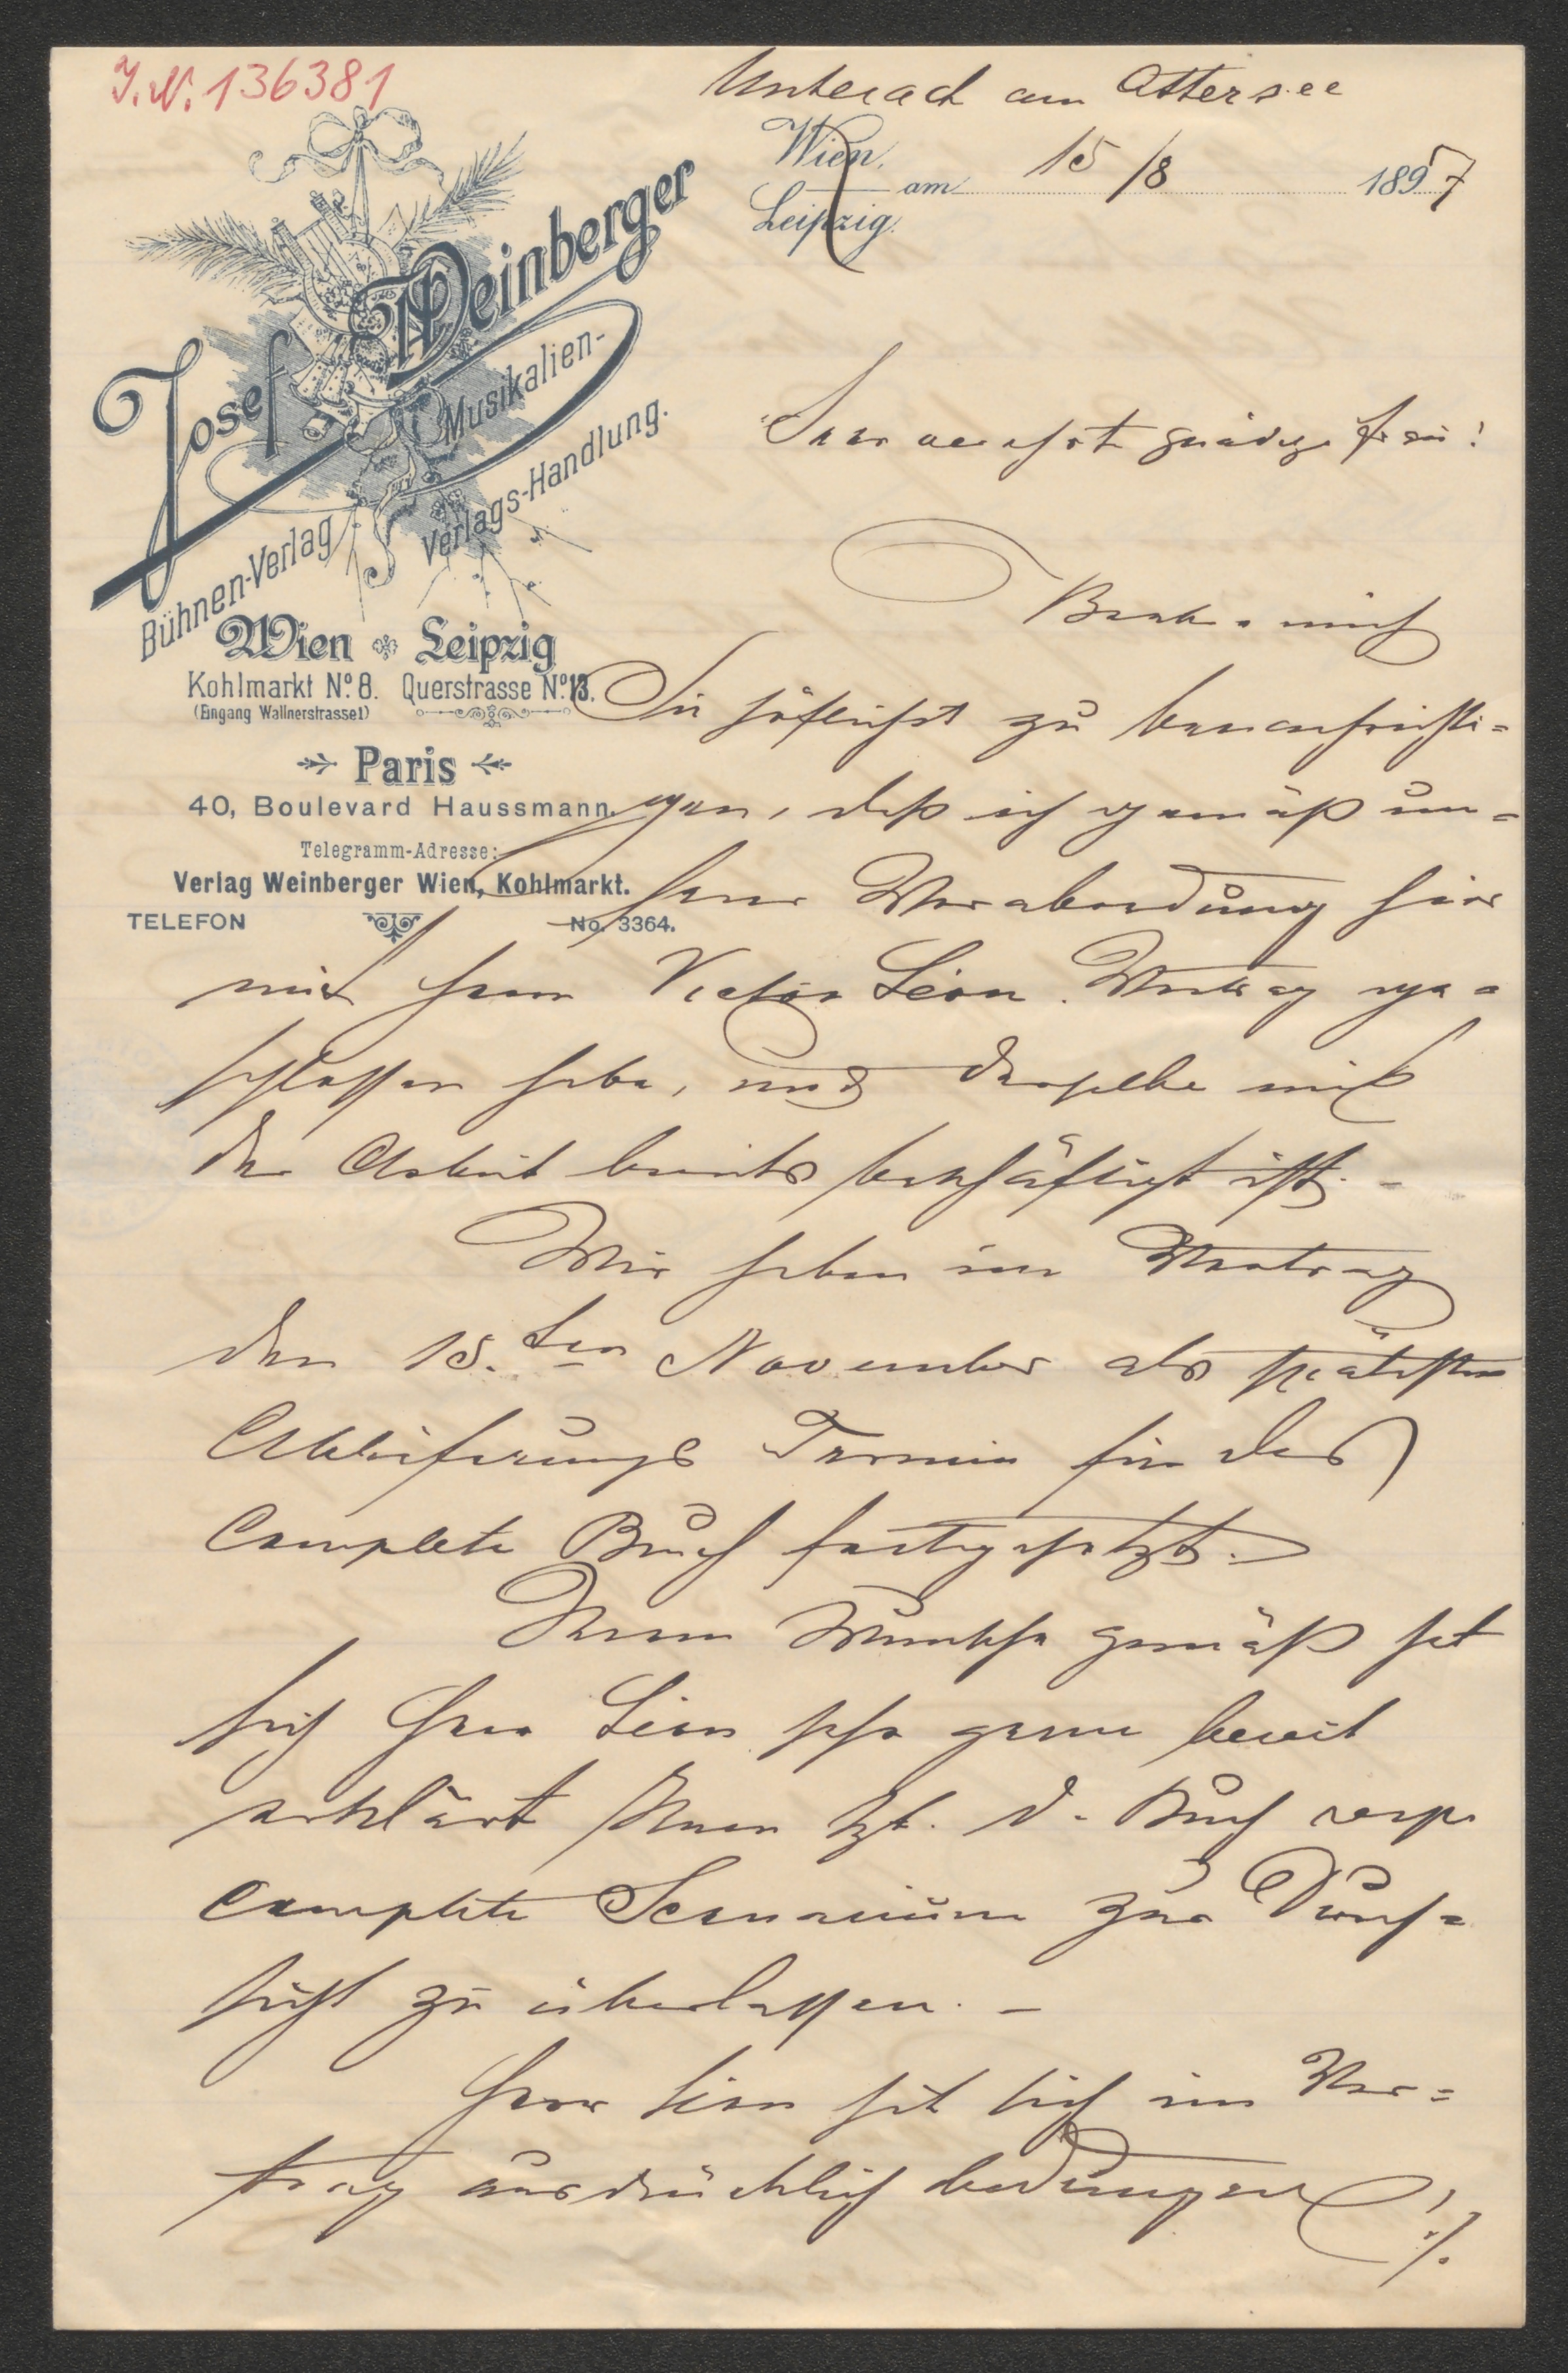 J.N. 136381
Unterach am Attersee
Wien,
Leipzig.
am 15/8 1897
Josef Weinberger
Musikalien-
Verlags-Handlung.
Bühnen-Verlag
Wien Leipzig
Kohlmarkt No. 8. Querstrasse No. 13.
(Eingang Wallnerstrasse1)
Paris
40, Boulevard Haussmann.
Telegramm-Adresse:
Verlag Weinberger Wien, Kohlmarkt.
TELEFON No. 3364.
Sehr verehrte gnädige Frau!
Beehre mich
Sie höflichst zu benachrichti=
gen, daß ich gemäß un=
serer Verabredung hier
mit Herrn Victor Léon Vertrag ge=
schlossen habe, und derselbe mit
der Arbeit bereits beschäftigt ist. –
Wir haben im Vertrag
den 15.ten November als spätesten
Ablieferungs Termin für das
complete Buch festgesetzt. –
Ihrem Wunsche gemäß hat
sich Herr Léon sehr gerne bereit
erklärt Ihnen d. Buch resp.
complete Scenarium zur Durch=
sicht zu überlassen. –
Herr Léon hat sich im Ver=
trag ausdrücklich bedungen
./.